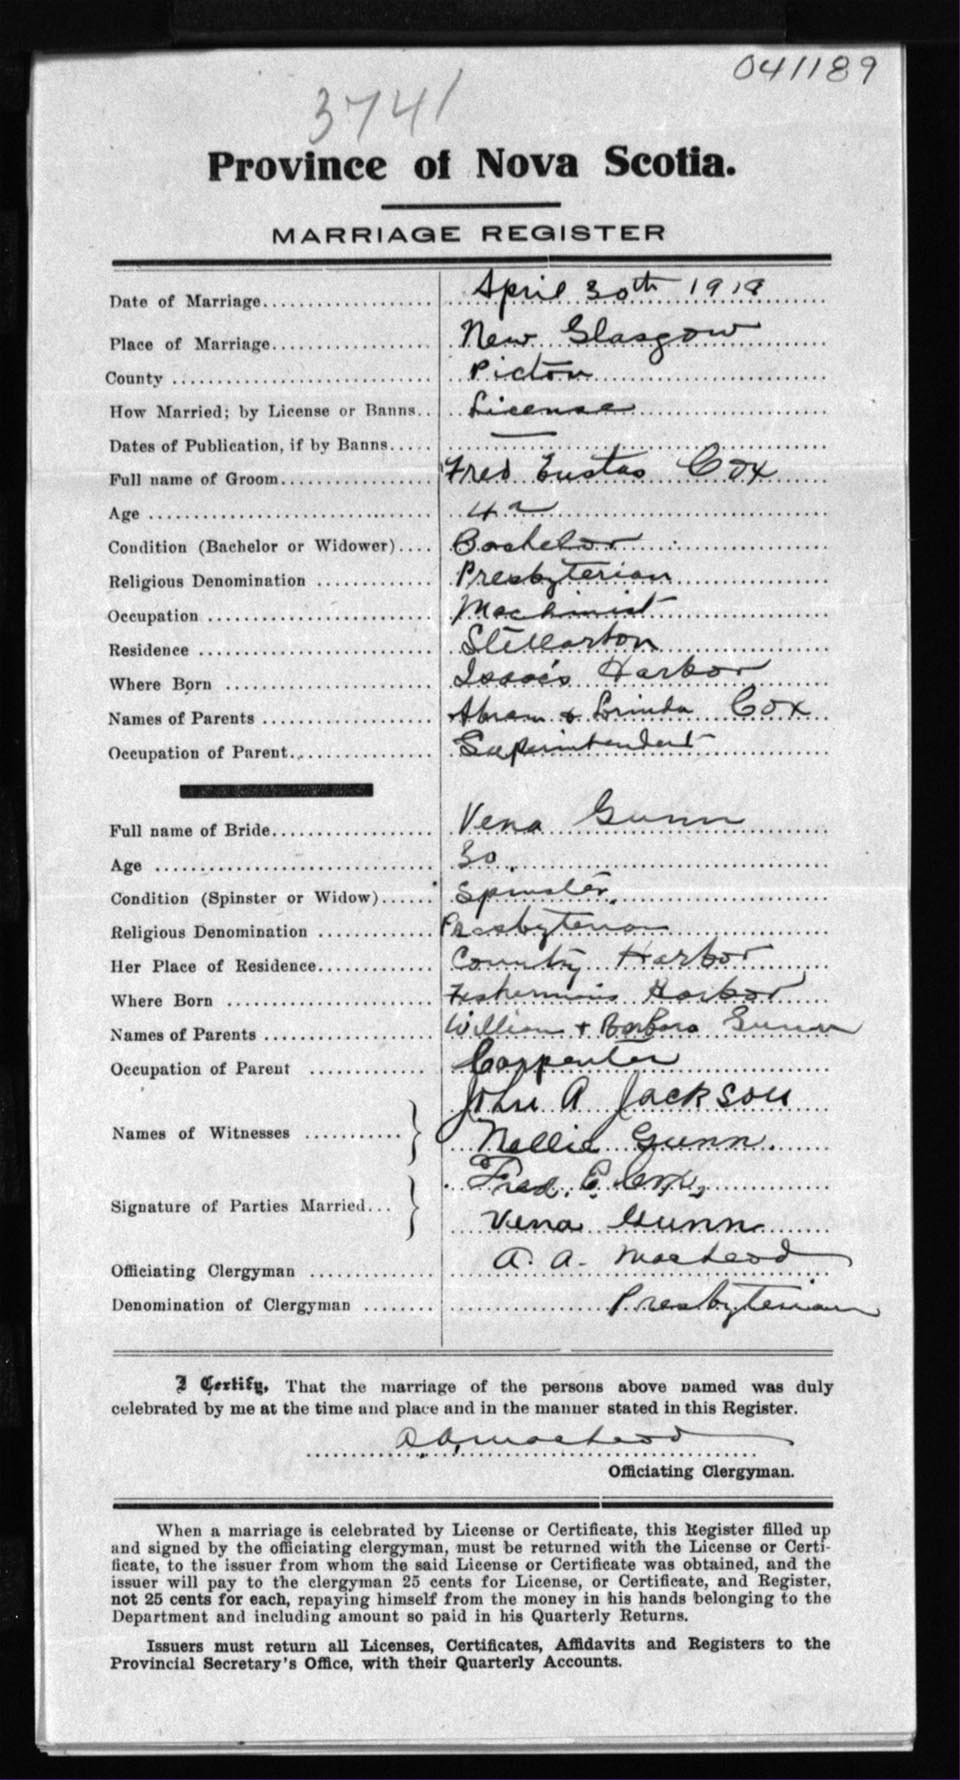 041189
3741
Province of Nova Scotia.
MARRIAGE REGISTER
Date of Marriage.................... April 30th 1918
Place of Marriage................... New Glasgow
County .............................. Pictou
How Married; by License or Banns.. License
Dates of Publication, if by Banns..... —
Full name of Groom.................. Fred Eustas Cox
Age .................................. 42
Condition (Bachelor or Widower).... Bachelor
Religious Denomination .............. Presbyterian
Occupation .......................... Machinist
Residence ........................... Stellarton
Where Born ......................... Isaac's Harbor
Names of Parents .................... Abram & Lorinda Cox
Occupation of Parent................. Superintendent
Full name of Bride................... Vena Gunn
Age ................................. 30.
Condition (Spinster or Widow)...... Spinster.
Religious Denomination .............. Presbyterian
Her Place of Residence.............. Country Harbor
Where Born ......................... Fisherman's Harbor
Names of Parents .................... William + Barbara Gunn
Occupation of Parent ............... Carpenter
John A Jackson
Names of Witnesses ............
Nellie Gunn.
Fred. E. Cox,
Signature of Parties Married...
Vena Gunn
Officiating Clergyman ............... A. A. MacLeod
Denomination of Clergyman ........ Presbyterian
I Certify, That the marriage of the persons above named was duly
celebrated by me at the time and place and in the manner stated in this Register.
A. A. MacLeod
Officiating Clergyman.
When a marriage is celebrated by License or Certificate, this Register filled up
and signed by the officiating clergyman, must be returned with the License or Certi-
ficate, to the issuer from whom the said License or Certificate was obtained, and the
issuer will pay to the clergyman 25 cents for License, or Certificate, and Register,
not 25 cents for each, repaying himself from the money in his hands belonging to the
Department and including amount so paid in his Quarterly Returns.
Issuers must return all Licenses, Certificates, Affidavits and Registers to the
Provincial Secretary's Office, with their Quarterly Accounts.